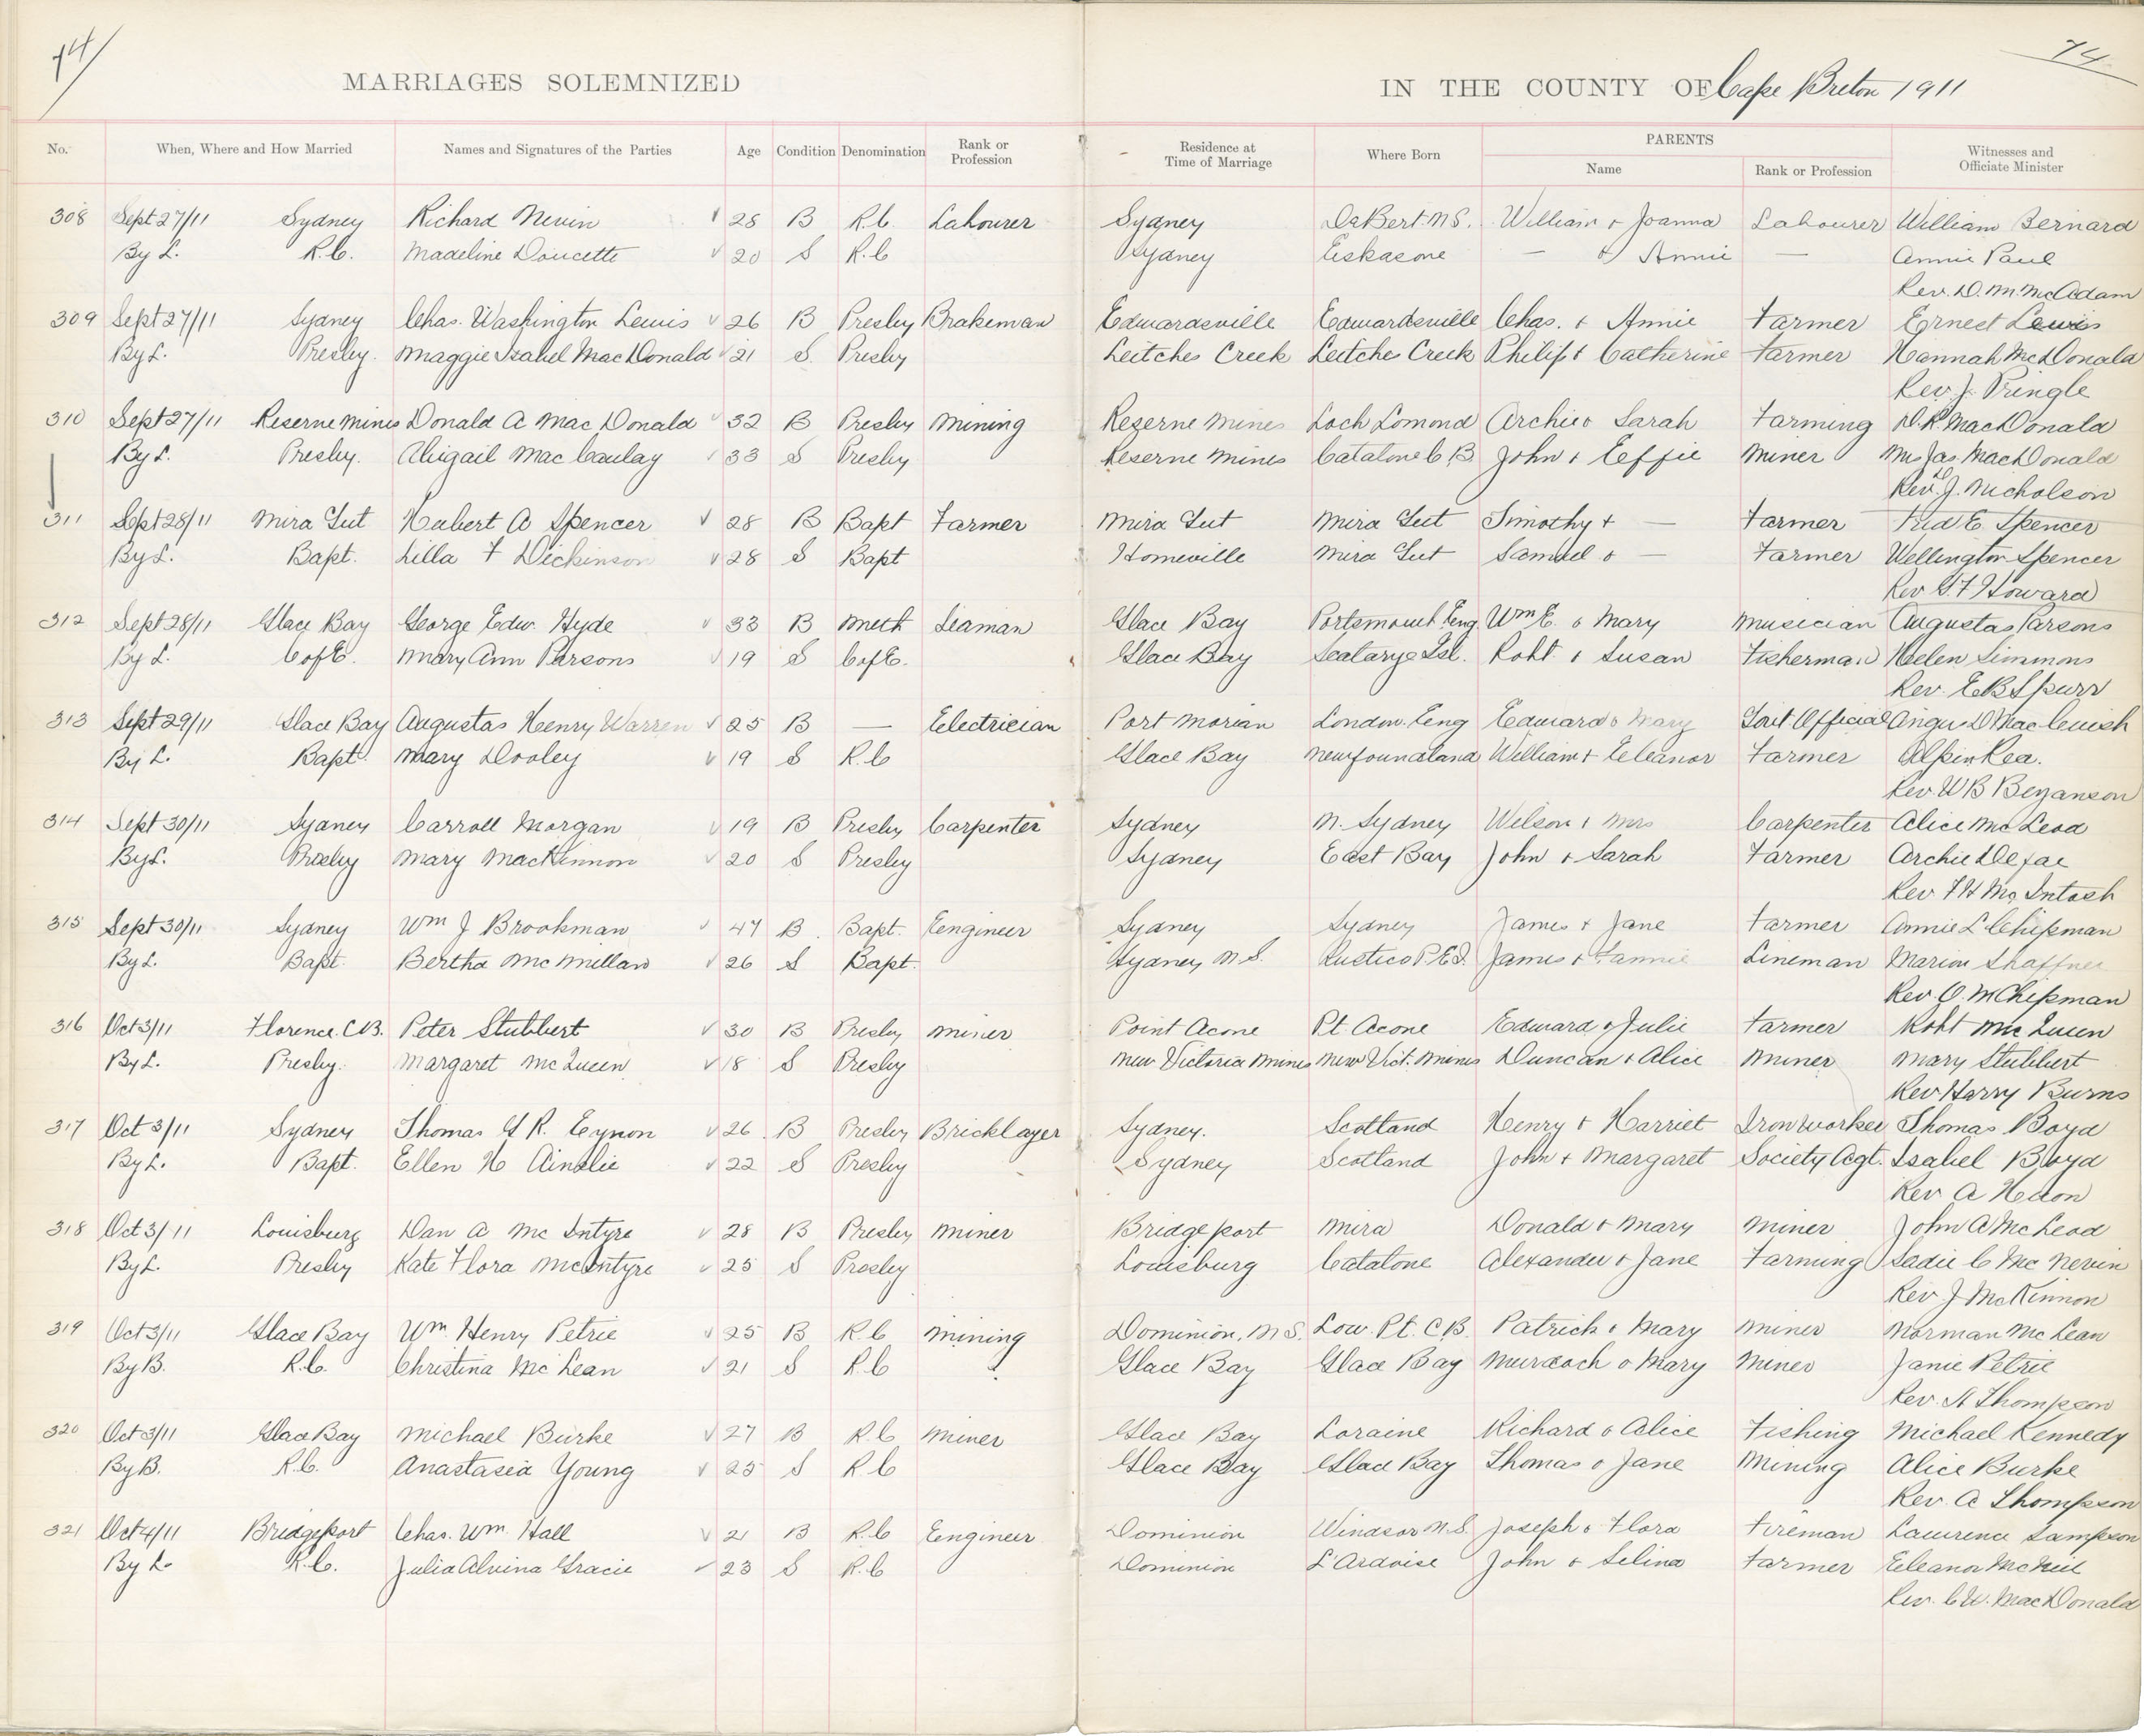 74
74
MARRIAGES SOLEMNIZED
IN THE COUNTY OF Cape Breton 1911
No. When, Where and How Married Names and Signatures of the Parties Age Condition Denomination Rank or Profession Residence at Time of Marriage Where Born PARENTS Name Rank or Profession Witnesses and Officiate Minister
308 Sept 27/11 Sydney Richard Nevin 28 B R.C. Labourer Sydney DeBert N.S. William & Joanna Labourer William Bernard
By L. R.C. Madeline Doucette 20 S R.C Sydney Eskasone — & Annie — Annie Paul
Rev. D. M. McAdam
309 Sept 27/11 Sydney Chas. Washington Lewis 26 B Presby Brakeman Edwardsville Edwardsville Chas. & Annie Farmer Ernest Lewis
By L. Presby. Maggie Isabel MacDonald 21 S. Presby Leitches Creek Leitches Creek Philip & Catherine Farmer Hannah McDonald
Rev. J. Pringle
310 Sept 27/11 Reserve Mines Donald A MacDonald 32 B Presby Mining Reserve Mines Loch Lomond Archie & Sarah Farming D.R. MacDonald
By L. Presby. Abigail MacCaulay 33 S Presby Reserve Mines Catalone C.B. John & Effie Miner Mrs Jas. MacDonald
Rev. J. Nicholson
311 Sept 28/11 Mira Gut Hubert A Spencer 28 B Bapt Farmer Mira Gut Mira Gut Timothy & — Farmer Fred E. Spencer
By L. Bapt. Lilla F Dickinson 28 S Bapt Homeville Mira Gut Samuel & — Farmer Wellington Spencer
Rev G.F Howard
312 Sept 28/11 Glace Bay George Edw. Hyde 33 B Meth Seaman Glace Bay Portsmouth Eng. Wm E. & Mary Musician Augustas Parsons
By L. C of E. Mary Ann Parsons 19 S C of E. Glace Bay Scatarye Isl. Robt. & Susan Fisherman Helen Simmons
Rev. E B Spurr
313 Sept 29/11 Glace Bay Augustas Henry Warren 25 B — Electrician Port Morian London. Eng Edward & Mary Govt. Official Angus D MacCuish
By L. Bapt. Mary Dooley 19 S R.C Glace Bay Newfoundland William & Eleanor Farmer Alpin Rea.
Rev. W B Bezanson
314 Sept 30/11 Sydney Carroll Morgan 19 B Presby Carpenter Sydney N. Sydney Wilson & Mrs Carpenter Alice McLeod
By L. Presby Mary MacKinnon 20 S Presby Sydney East Bay John & Sarah Farmer Archie
Rev F H McIntosh
315 Sept 30/11 Sydney Wm J Brookman 47 B. Bapt. Engineer Sydney Sydney James & Jane Farmer Annie L Chipman
By L. Bapt. Bertha McMillan 26 S Bapt. Sydney N S. Rustico P.E.I. James & Fannie Lineman Marion Shaffner
Rev. O. M Chipman
316 Oct 3/11 Florence. C.B. Peter Stubbert 30 B Presby Miner Point Acone Pt. Acone Edward & Julie Farmer Robt McQueen
By L. Presby. Margaret McQueen 18 S Presby New Victoria Mines New Vict. Mines Duncan & Alice Miner Mary Stubbert
Rev Harry Burns
317 Oct 3/11 Sydney Thomas Y R. Eynon 26. B Presby Bricklayer Sydney. Scotland Henry & Harriet Iron worker Thomas Boyd
By L. Bapt. Ellen H Ainslie 22 S Presby Sydney Scotland John & Margaret Society Agt. Isabel Boyd
Rev. A
318 Oct 3/11 Louisburg Dan A McIntyre 28 B Presby Miner Bridgeport Mira Donald & Mary Miner John A McLeod
By L. Presby Kate Flora McIntyre 25 S Presby Louisburg Catalone Alexander & Jane Farming Sadie C McNevin
Rev. J McKinnon
319 Oct 3/11 Glace Bay Wm Henry Petrie 25 B R.C Mining Dominion, N S. Low. Pt. C.B. Patrick & Mary Miner Norman McLean
By B. R.C. Christina McLean 21 S R.C Glace Bay Glace Bay Murdoch & Mary Miner Janie Petrie
Rev. A Thompson
320 Oct 3/11 Glace Bay Michael Burke 27 B R.C Miner Glace Bay Loraine Richard & Alice Fishing Michael Kennedy
By B. R.C. Anastasia Young 25 S R C Glace Bay Glace Bay Thomas & Jane Mining Alice Burke
Rev. A Thompson
321 Oct 4/11 Bridgeport Chas. Wm. Hall 21 B R.C Engineer Dominion Windsor N.S. Joseph & Flora Fireman Lawrence Sampson
By L. R.C. Julia Alvina Gracie 23 S R.C Dominion L'Ardoise John & Selina Farmer Eleanor McNeil
Rev. C.W. MacDonald